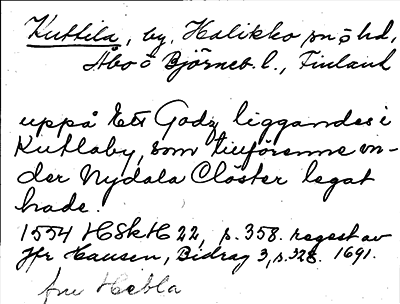 Kuttila, by, Halikko sn o hd,
Åbo o Björneb. l., Finland
uppå Ett Godz liggandes i
Kutlaby, som tillförenne vn-
der Nydala Closter legat
hade.
1554 HSkH 22, p. 358. regest av
Jfr Hausen, Bidrag 3, s. 328. 1691.
fru Hebla